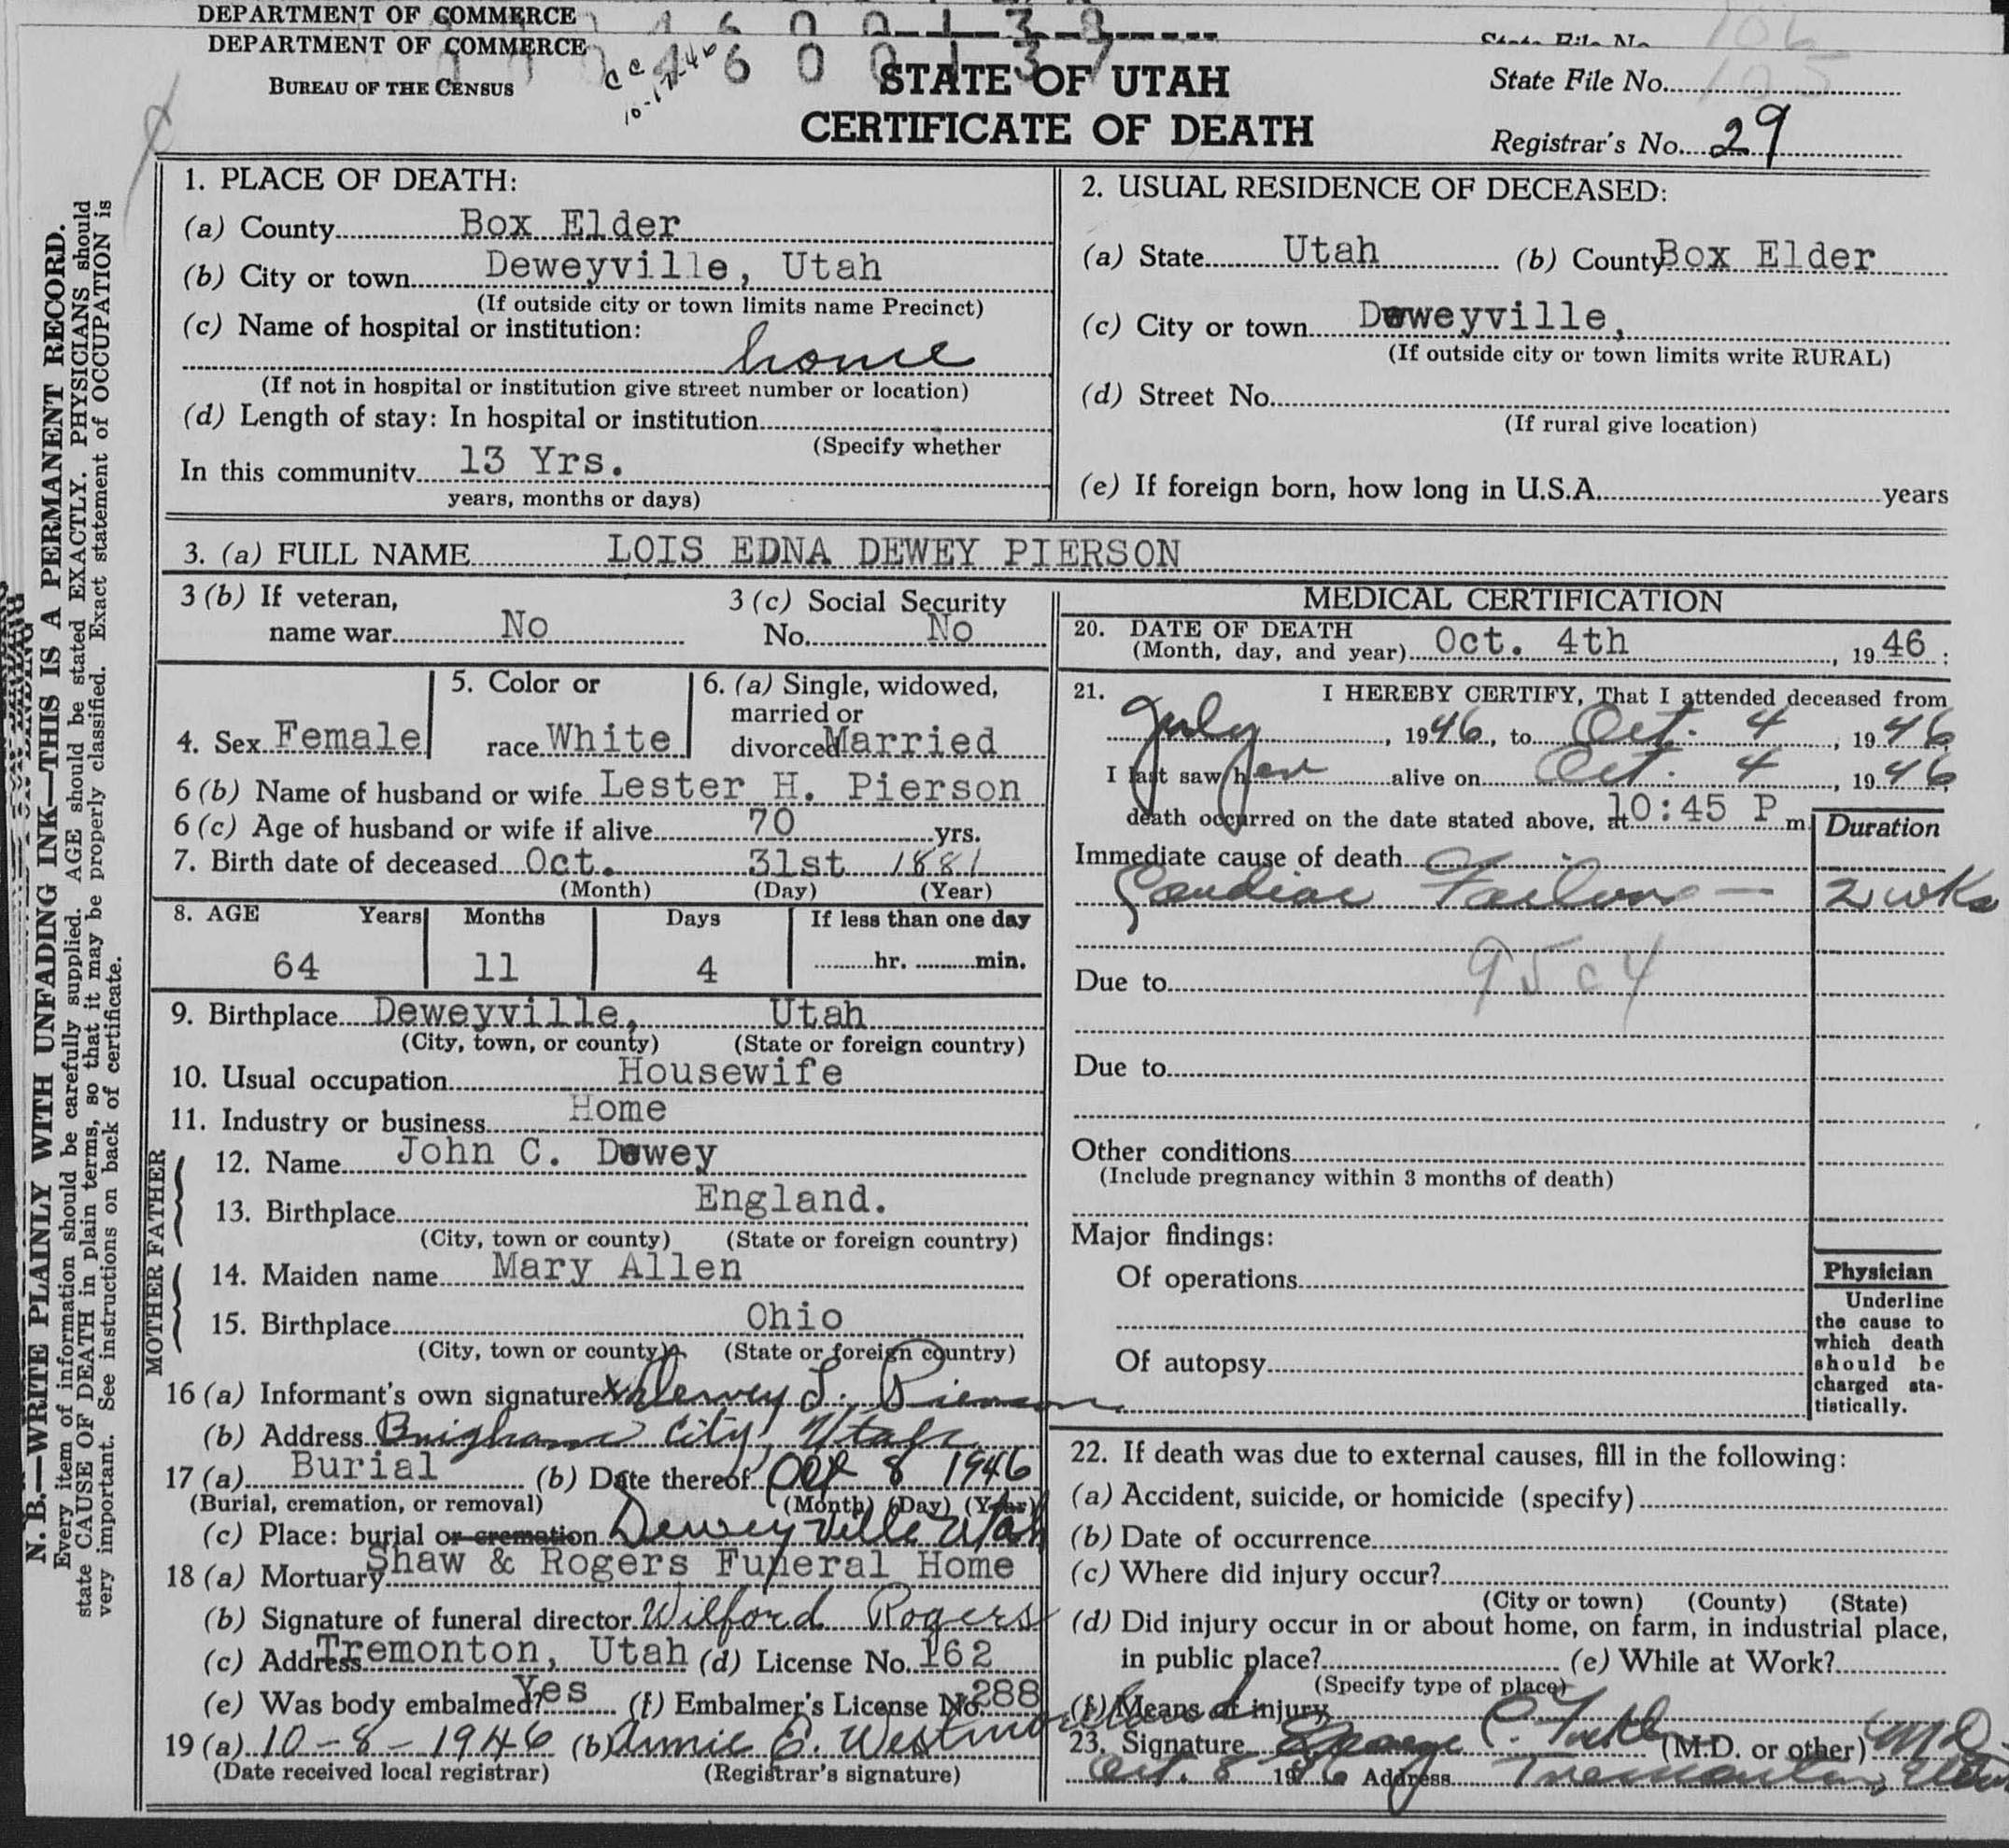 DEPARTMENT OF COMMERCE
DEPARTMENT OF COMMERCE
BUREAU OF THE CENSUS
STATE OF UTAH
CERTIFICATE OF DEATH
State File No.
State File No. 105
Registrar's No. 29
N. B.—WRITE PLAINLY WITH UNFADING INK—THIS IS A PERMANENT RECORD.
Every item of information should be carefully supplied. AGE should be stated EXACTLY. PHYSICIANS should
state CAUSE OF DEATH in plain terms, so that it may be properly classified. Exact statement of OCCUPATION is
very important. See instructions on back of certificate.
1. PLACE OF DEATH:
(a) County Box Elder
(b) City or town Deweyville, Utah
(If outside city or town limits name Precinct)
(c) Name of hospital or institution:
home
(If not in hospital or institution give street number or location)
(d) Length of stay: In hospital or institution
(Specify whether
In this community 13 Yrs.
years, months or days)
2. USUAL RESIDENCE OF DECEASED:
(a) State Utah (b) County Box Elder
(c) City or town Deweyville,
(If outside city or town limits write RURAL)
(d) Street No.
(If rural give location)
(e) If foreign born, how long in U.S.A. years
3. (a) FULL NAME LOIS EDNA DEWEY PIERSON
3 (b) If veteran,
name war No
3 (c) Social Security
No. No
4. Sex Female
5. Color or
race White
6. (a) Single, widowed,
married or
divorced Married
6 (b) Name of husband or wife Lester H. Pierson
6 (c) Age of husband or wife if alive 70 yrs.
7. Birth date of deceased Oct. 31st 1881
(Month) (Day) (Year)
8. AGE Years Months Days If less than one day
64 11 4 hr. min.
9. Birthplace Deweyville, Utah
(City, town, or county) (State or foreign country)
10. Usual occupation Housewife
11. Industry or business Home
FATHER
12. Name John C. Dewey
13. Birthplace England.
(City, town or county) (State or foreign country)
MOTHER
14. Maiden name Mary Allen
15. Birthplace Ohio
(City, town or county) (State or foreign country)
16 (a) Informant's own signature x Dewey L. Pierson
(b) Address Brigham City, Utah
17 (a) Burial (b) Date thereof Oct 8 1946
(Burial, cremation, or removal) (Month) (Day) (Year)
(c) Place: burial or cremation Deweyville Utah
18 (a) Mortuary Shaw & Rogers Funeral Home
(b) Signature of funeral director Wilford Rogers
(c) Address Tremonton, Utah (d) License No. 162
(e) Was body embalmed? Yes (f) Embalmer's License No. 288
19 (a) 10-8-1946 (b) Annie E. Westmoreland
(Date received local registrar) (Registrar's signature)
MEDICAL CERTIFICATION
20. DATE OF DEATH
(Month, day, and year) Oct. 4th, 1946 :
21. I HEREBY CERTIFY, That I attended deceased from
July, 1946, to Oct. 4, 1946
I last saw her alive on Oct. 4, 1946
death occurred on the date stated above, at 10:45 P m.
Duration
Immediate cause of death
Cardiac Failure — 2 wks
95 c 4
Due to
Due to
Other conditions
(Include pregnancy within 3 months of death)
Major findings:
Of operations
Of autopsy
Physician
Underline
the cause to
which death
should be
charged sta-
tistically.
22. If death was due to external causes, fill in the following:
(a) Accident, suicide, or homicide (specify)
(b) Date of occurrence
(c) Where did injury occur?
(City or town) (County) (State)
(d) Did injury occur in or about home, on farm, in industrial place,
in public place? (e) While at Work?
(Specify type of place)
(f) Means of injury
23. Signature George C. (M.D. or other) MD.
Oct. 8 1946 Address Tremonton, Utah